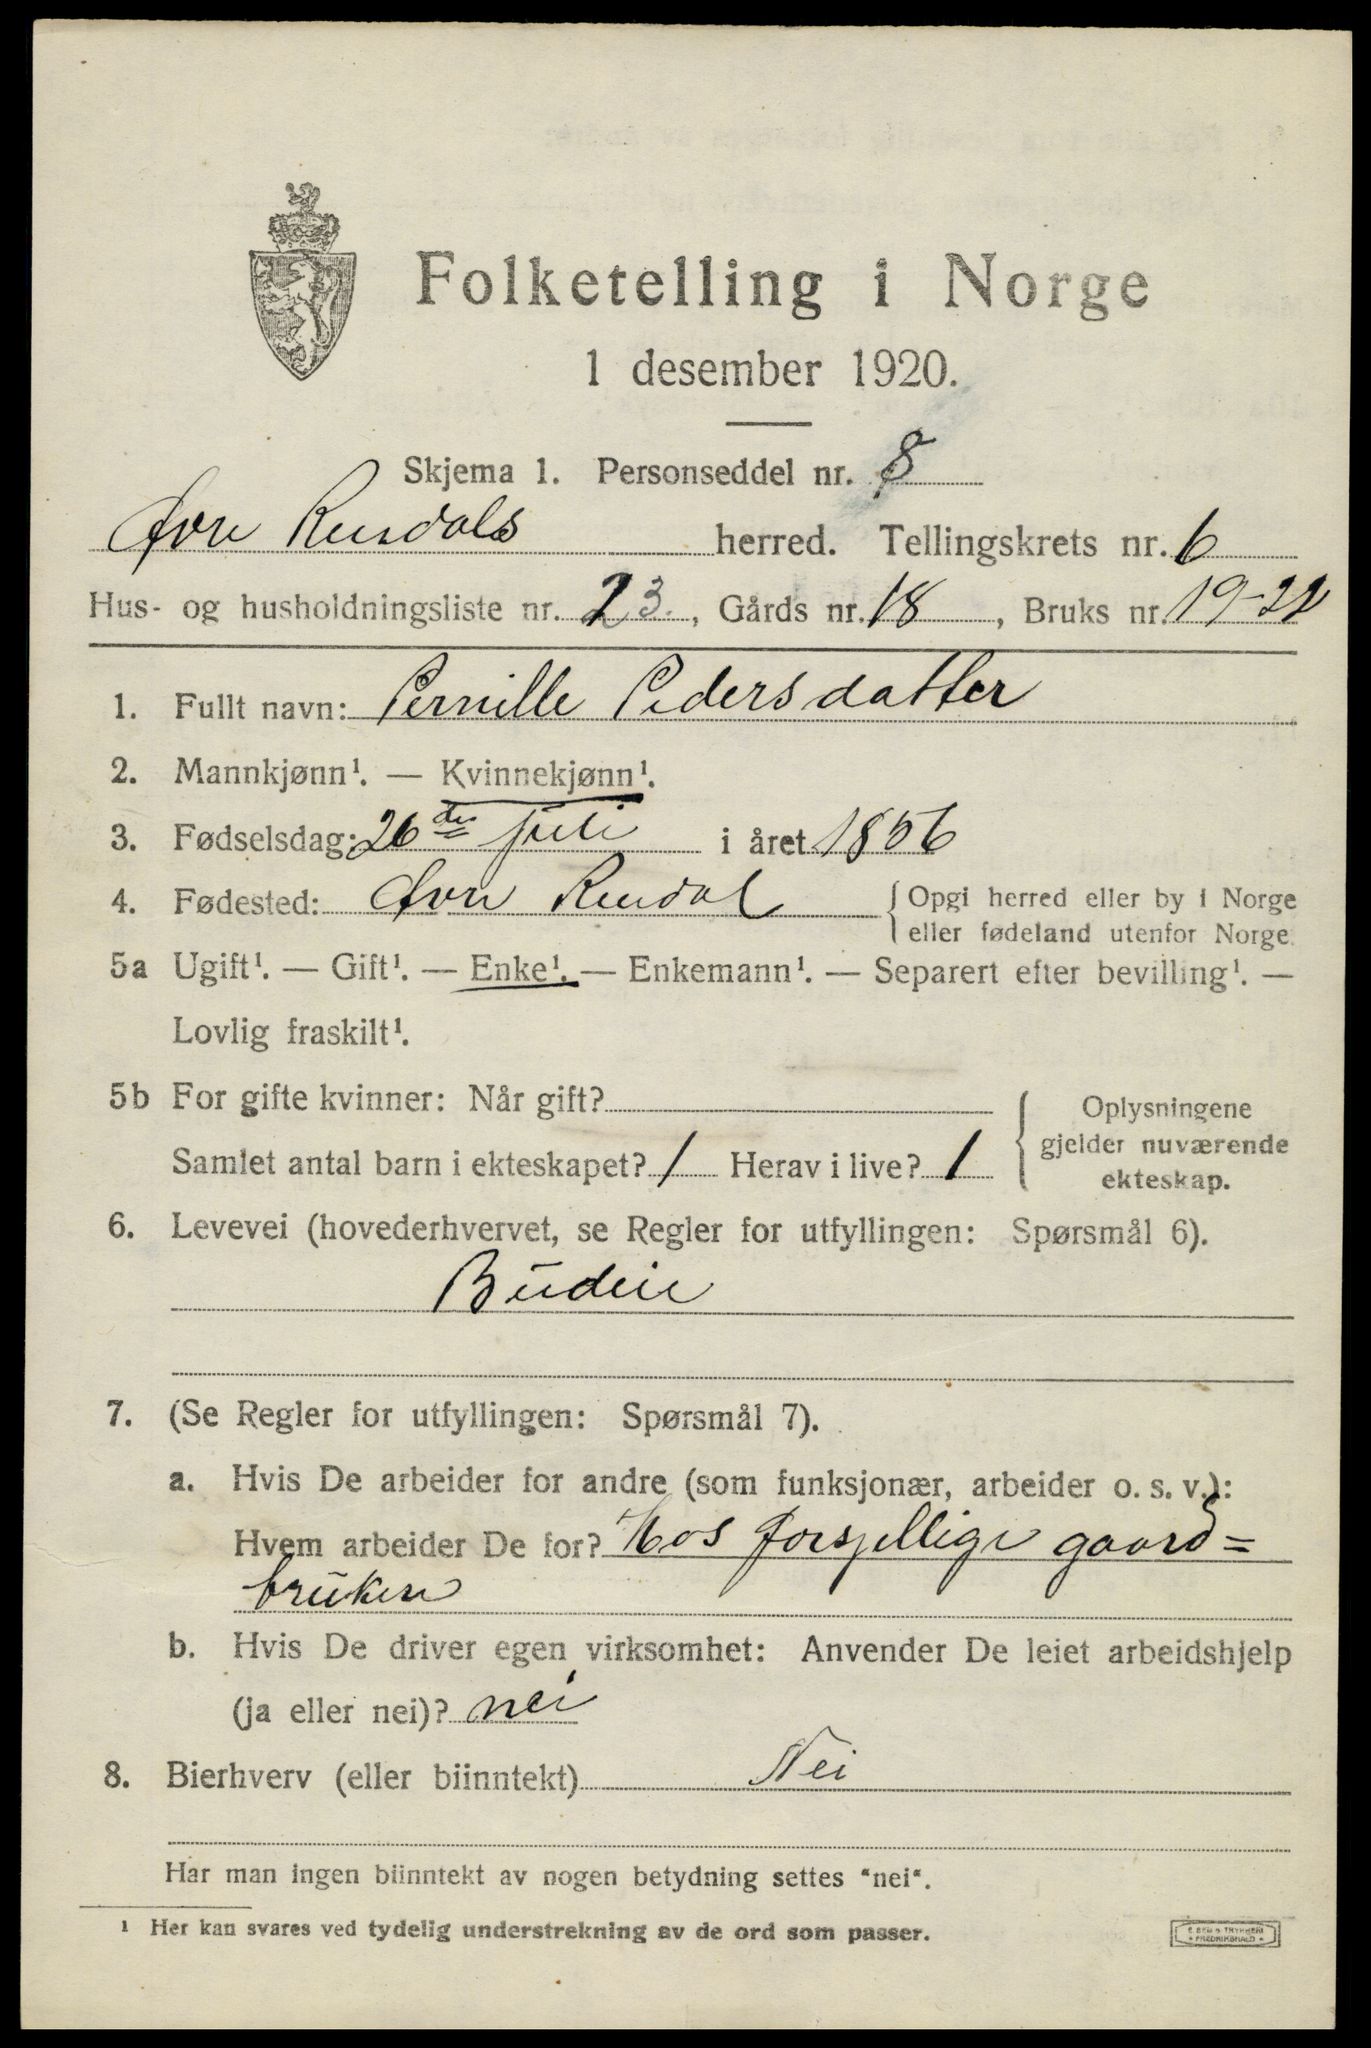 Folketelling i Norge
1 desember 1920.
Skjema 1. Personseddel nr. 8
Øvre Rendals herred. Tellingskrets nr. 6
Hus- og husholdningsliste nr. 23., Gårds nr. 18, Bruks nr. 19-22
1. Fullt navn: Pernille Pedersdatter
2. Mannkjønn¹. — Kvinnekjønn¹.
3. Fødselsdag: 26de juli i året 1856
4. Fødested: Øvre Rendal { Opgi herred eller by i Norge
eller fødeland utenfor Norge.
5a Ugift¹. — Gift¹. — Enke¹. — Enkemann¹. — Separert efter bevilling¹. —
Lovlig fraskilt¹.
5b For gifte kvinner: Når gift? { Oplysningene
gjelder nuværende
Samlet antal barn i ekteskapet? 1 Herav i live? 1 ekteskap.
6. Levevei (hovederhvervet, se Regler for utfyllingen: Spørsmål 6).
Budeie
7. (Se Regler for utfyllingen: Spørsmål 7).
a. Hvis De arbeider for andre (som funksjonær, arbeider o. s. v.):
Hvem arbeider De for? Hos forsjellige gaard=
brukere
b. Hvis De driver egen virksomhet: Anvender De leiet arbeidshjelp
(ja eller nei)? nei
8. Bierhverv (eller biinntekt) Nei
Har man ingen biinntekt av nogen betydning settes "nei".
¹ Her kan svares ved tydelig understrekning av de ord som passer.